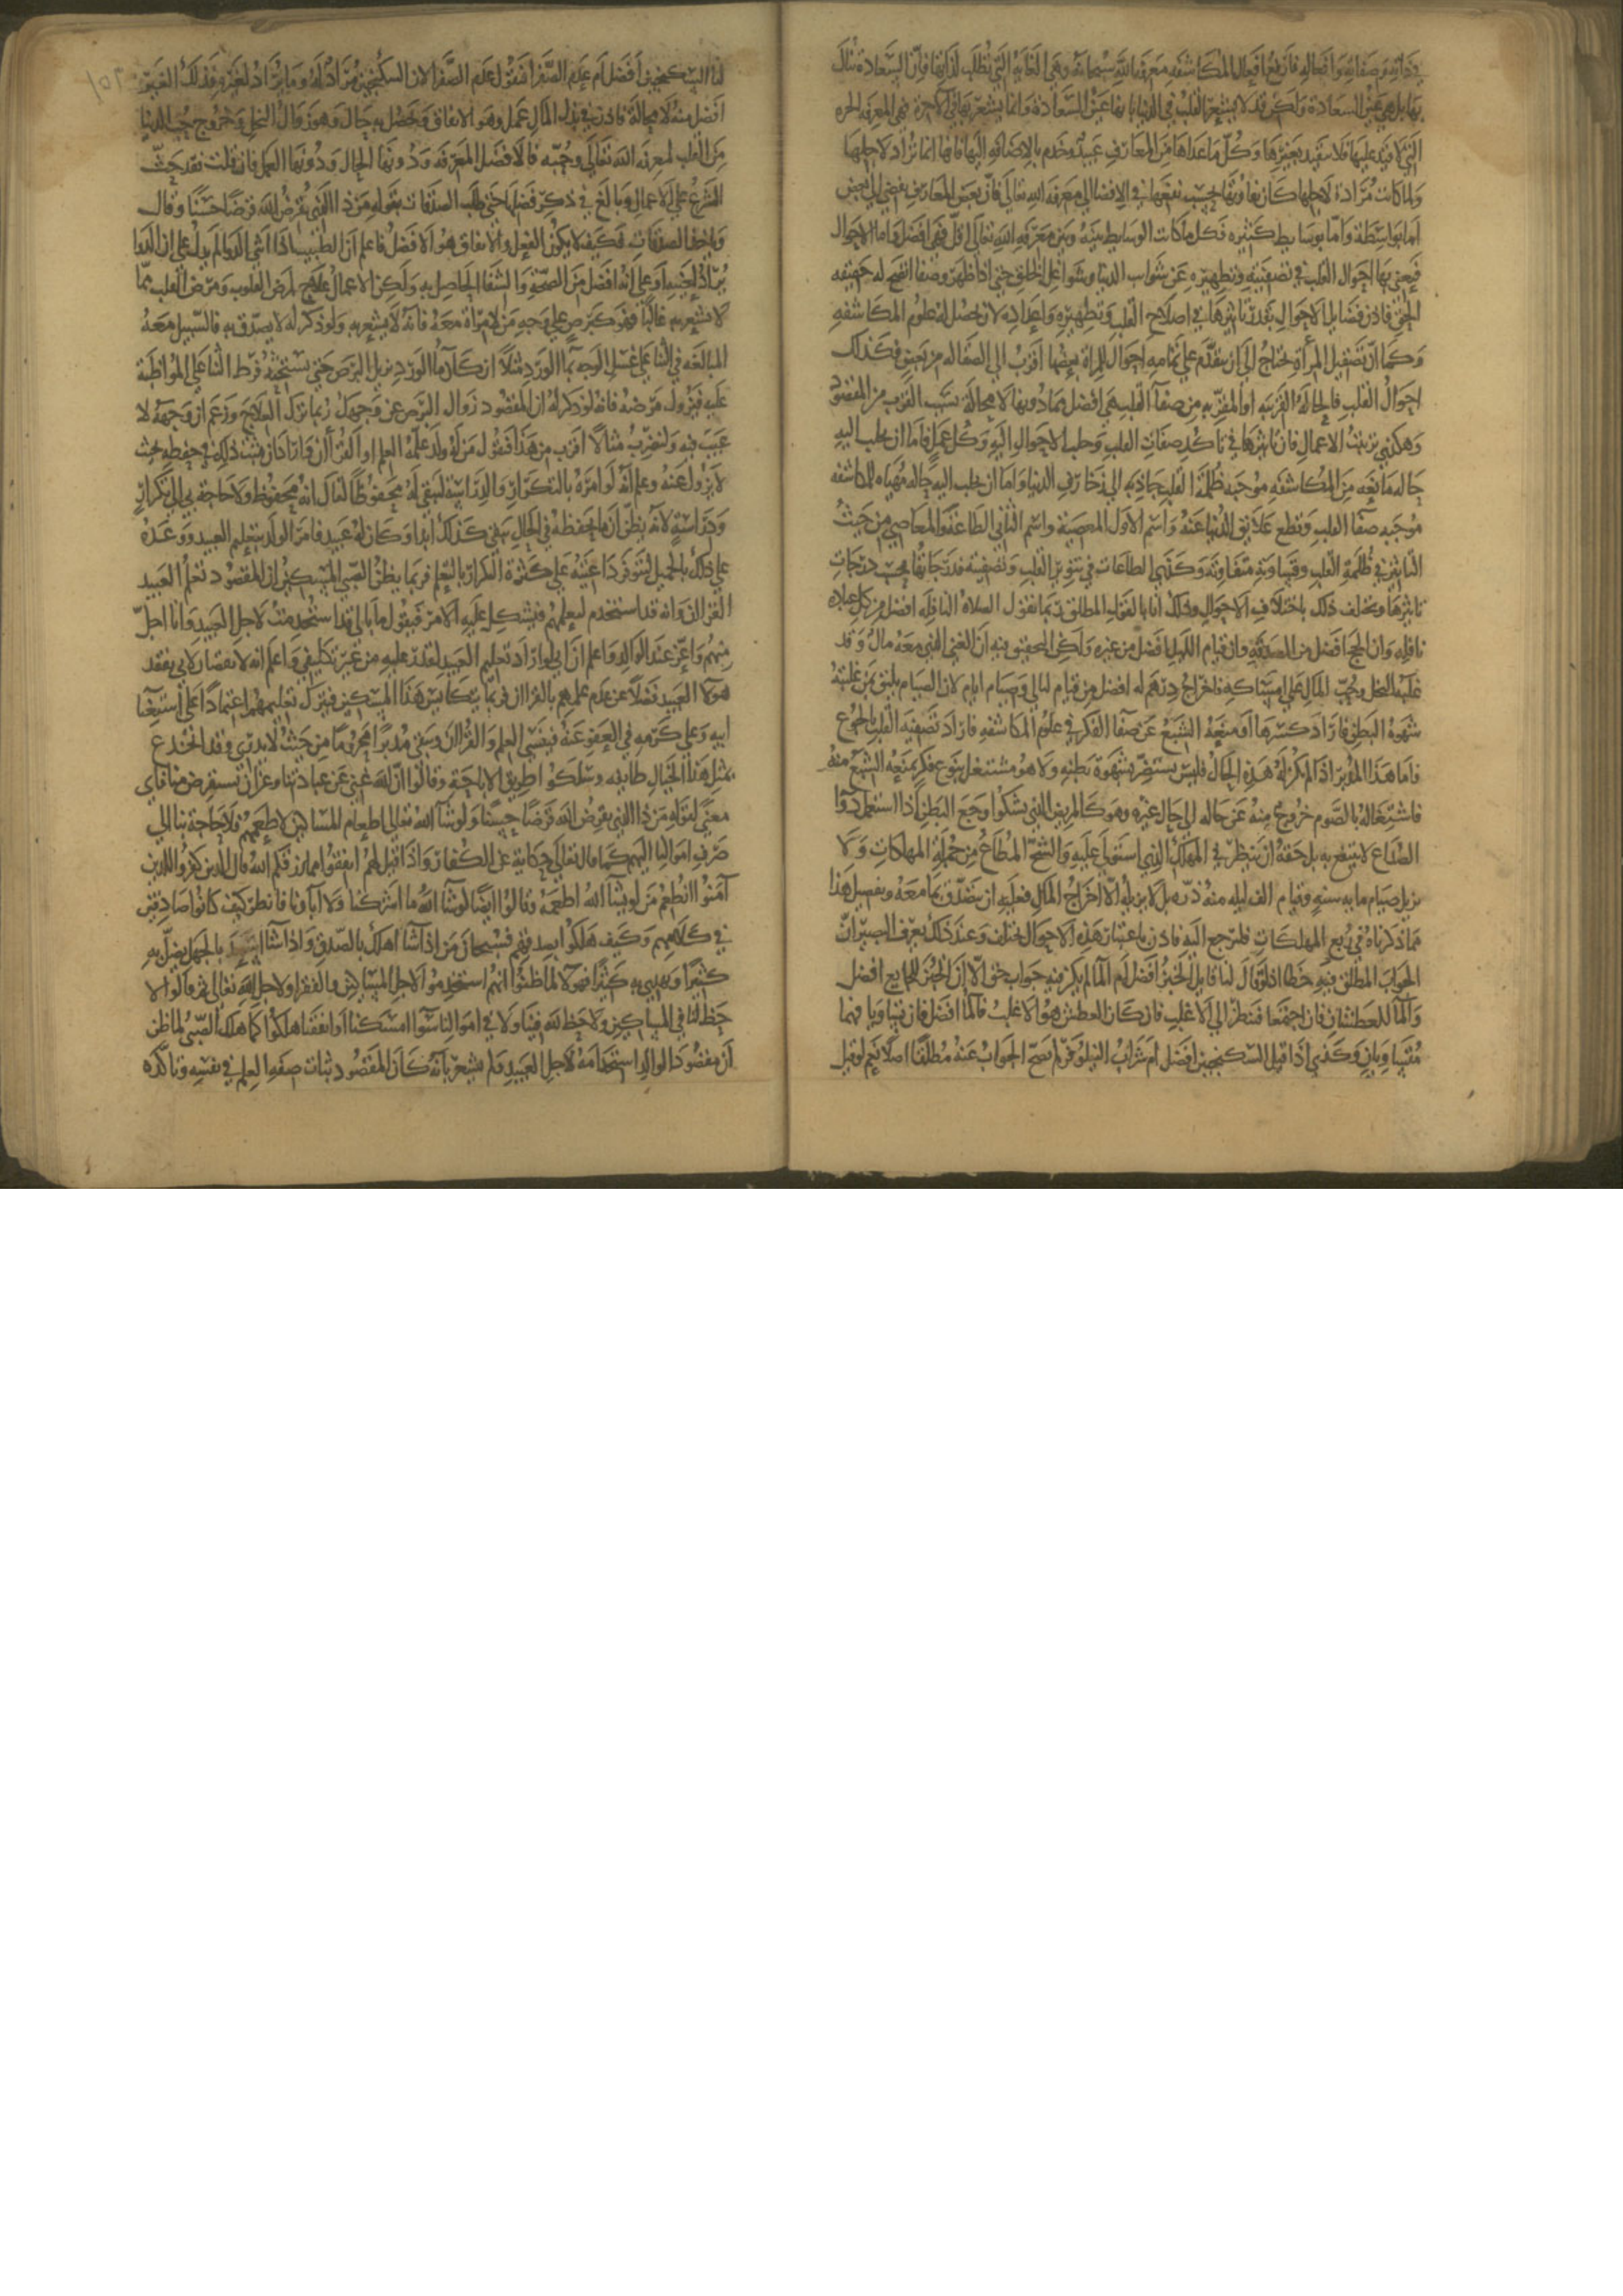 في ذاته وصفاته وافعاله فارفع افعال المكاشفه معرفه الله سبحانه وهي الغايه التي تطلب لذاتها فان السعادة تنال
بها بل هي عين السعادة ولكن قد لا يشعر القلب في الدنيا بانها عين السعادة وانما يشعر بها في الاخرة فهي المعرفه الحره
التي لا قيد عليها فلا تتقيد بغيرها وكل ما عداها من المعارف عبيد وخدم بالاضافه اليها فانها انما تراد لاجلها
ولما كانت مرادة لاجلها كان تفاوتها بحسب نفعها في الافضا الي معرفه الله تعالي فان بعض المعارف يفضي الي بعض
اما بواسطة واما بوسايط كثيره فكل ما كانت الوسايط بينه وبين معرفه الله تعالي اقل فهي افضل واما الاحوال
فيعني بها احوال القلب في تصفيته وتطهيره عن شواب الدنيا وشواغل الخلق حتي اذا ظهر وصفا اتضح له حقيقه
الحق فاذن فضايل الاحوال بقدر تاثيرها في اصلاح القلب وتطهيره واعداده لان تحصل له علوم المكاشفه
وكما ان تصقيل المرأة يحتاج الي ان يتقدم علي تمامه احوال للمراة بعضها اقرب الي الصقاله من بعض فكذلك
احوال القلب فالحاله القريبه او المقربه من صفآ القلب هي افضل مما دونها لا محاله بسبب القرب من المقصود
وهكذي ترتيب الاعمال فان تاثيرها في تاكد صفات القلب وجلب الاحوال اليه وكل عمل فاما ان يجلب اليه
حاله مانعه من المكاشفه موجبه ظلمة القلب جاذبه الي زخارف الدنيا واما ان يجلب اليه حاله مهياه للمكاشفه
موجبه صفا القلب وقطع علايق الدنيا عنه واسم الاول المعصية واسم الثاني الطاعة والمعاصي من حيث
التاثير في ظلمة القلب وقساوته متفاوته وكذي الطاعات في تنوير القلب وتصفيته فدرجاتها بحسب درجات
تاثيرها ويختلف ذلك باختلاف الاحوال وذلك انا بالقول المطلق ربما نقول الصلاة النافله افضل من كل عبادة
نافله وان الحج افضل من الصدقه وان قيام الليل افضل من غيره ولكن التحقيق فيه ان الغني الذي معه مال وقد
غلبه البخل وحب المال علي امساكه فاخراج درهم له افضل من قيام ليالي وصيام ايام لان الصيام يليق بمن غلبته
شهوة البطن فاراد كسرها او منعه الشبع عن صفآ الفكر في علوم المكاشفه فاراد تصفيه القلب بالجوع
فاما هذا المدبر اذا لم يكن له هذه الحال فليس يستضر بشهوة بطنه ولا هو مشتغل بنوع فكر يمنعه الشبع منه
فاشتغاله بالصوم خروج منه عن حاله الي حال غيره وهو كالمريض الذي يشكوا وجع البطن اذا استعمل دوآ
الصداع لا ينتفع به بل حقه ان ينظر في المهلك الذي استولي عليه والشح المطاع من جملة المهلكات ولا
يزيل صيام مايه سنه وقيام الف ليله منه ذره بل لا يزيله الا اخراج المال فعليه ان يتصدق بما معه وتفصيل هذا
مما ذكرناه في ربع المهلكات فليرجع اليه فاذن باعتبار هذه الاحوال يختلف وعند ذلك يعرف البصير ان
الجواب المطلق فيه خطا اذ لو قال لنا قايل الخبز افضل ام المآ لم يكن فيه جواب حق الا ان الخبز للجايع افضل
والمآ للعطشان فان اجتمعا فننظر الي الاغلب فان كان العطش هو الاغلب فالمآ افضل فان تساويا فهما
متساويان وكذي اذا قيل السكنجبين افضل ام شراب النيلوفر لم يصح الجواب عنه مطلقا اصلا نعم لو قيل
لنا السكنجبين افضل ام عدم الصفرا فنقول عدم الصفرا لان السكنجبين مراد له وما يراد لغيره فذلك الغير
افضل منه لا محاله فاذن في بذل المال عمل وهو الانفاق ويحصل به حال وهو زوال البخل وخروج حب الدنيا
من القلب لمعرفه الله تعالي وحبه فالافضل المعرفه ودونها الحال ودونها العمل فان قلت فقد حث
الشرع علي الاعمال وبالغ في ذكر فضلها حتي طلب الصدقات بقوله من ذا الذي يقرض الله قرضا حسنا وقال
وياخذ الصدقات فكيف لا يكون الفعل والانفاق هو الافضل فاعلم ان الطبيب اذا اثني الدوا لم يدل علي ان الدوا
يراد لعينه او علي انه افضل من الصحه والشفا الحاصل به ولكن الاعمال علاج لمرض القلوب ومرض القلب مما
لا يشعر به غالبا فهو كبرص علي وجه من لا مراة معه فانه لا يشعر به ولو ذكر له لا يصدق به فالسبيل معه
المبالغه في الثنا علي غسل الوجه بمآ الورد مثلا ان كان مآ الورد يزيل البرص حتي يستحثه فرط الثنا علي المواظبة
عليه فيزول مرضه فانه لو ذكر له ان المقصود زوال البرص عن وجهك ربما ترك العلاج وزعم ان وجهه لا
عيب فيه ولنضرب مثالا اقرب من هذا فنقول من له ولد علمه العلم او القرأن واراد ان يثبت ذلك في حفظه بحيث
لا يزول عنه وعلم انه لو امره بالتكرار والدراسة ليبقي له محفوظا لقال انه محفوظ ولا حاجة بي الي تكرار
ودراسة لانه يظن ان ما يحفظه في الحال يبقي كذلك ابدا وكان له عبيد فامر الولد بتعليم العبيد ووعده
علي ذلك بالجميل لتتوفر داعيته علي كثرة التكرار بالتعليم فربما يظن الصبي المسكين ان المقصود تعلم العبيد
القرأن وانه قد استخدم لتعليمهم فيشكل عليه الامر فيقول ما بالي قد استخدمت لاجل العبيد وانا اجل
منهم واعز عند الوالد واعلم ان ابي لو اراد تعليم العبيد لقدر عليه من غير تكليفي واعلم انه لا نقصان لابي بفقد
هولا العبيد فضلا عن عدم علمهم بالقرأن فربما يتكاسل هذا المسكين فيترك تعليمهم اعتمادا علي استغنا
ابيه وعلي كرمه في العفو عنه فينسي العلم والقرأن ويبقي مدبرا محروما من حيث لا يدري وقد انخدع
بمثل هذا الخيال طايفه وسلكوا طريق الاباحة وقالوا ان الله غني عن عبادتنا وعن ان يستقرض منا فاي
معني لقوله من ذا الذي يقرض الله قرضا حسنا ولو شآ الله تعالي اطعام المساكين لاطعمهم فلا حاجة بنا الي
صرف اموالنا اليهم كما قال تعالي حكاية عن الكفار واذا قيل لهم انفقوا مما رزقكم الله قال الذين كفروا للذين
آمنوا انطعم من لو يشآ الله اطعمه وقالوا ايضا لو شآ الله ما اشركنا ولا آباونا فانظر كيف كانوا صادقين
في كلامهم وكيف هلكوا بصدقهم فسبحان من اذا شآ اهلك بالصدق واذا شآ اسعد بالجهل يضل به
كثيرا ويهدي به كثيرا فهولا لما ظنوا انهم استخدموا لاجل المساكين والفقرا ولاجل الله تعالي ثم قالوا لا
حظ لنا في المساكين ولا حظ لله فينا ولا في اموالنا سوا امسكنا او انفقنا هلكوا كما هلك الصبي لما ظن
ان مقصود الوالد استخدامه لاجل العبيد ولم يشعر بانه كان المقصود ثبات صفه العلم في نفسه وتاكده